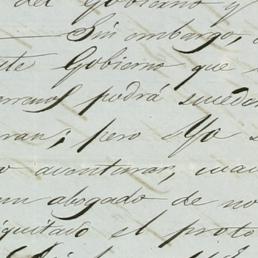 del Gobierno y
Sin embargo,
te Gobierno que
podrá suceder
ran; pero Yo
aventurar, cua
un abogado de no
quitado el proto